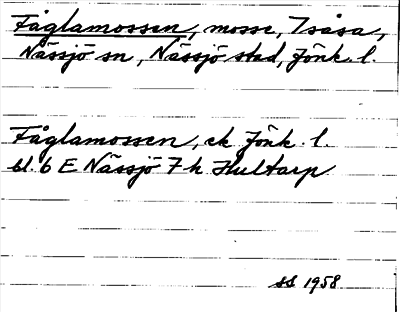 Fåglamossen, mosse, Isåsa,
Nässjö sn, Nässjö stad, Jönk. l.
Fåglamossen, ek Jönk. l.
bl. 6 E Nässjö 7 h Hultarp
SS 1958